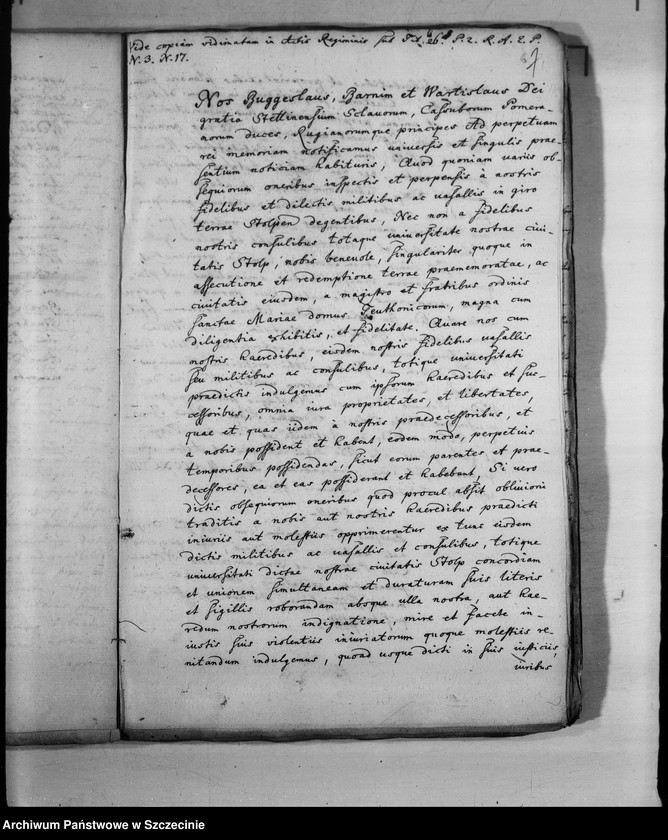 Vide copiam vidimatam in Actis Regiminis sub Tit. 26. P. 2. R. A. E. P.
N. 3. N. 17.
Nos Buggeslaus, Barnim et Wartislaus Dei
gratia Stettinensium Sclavorum, Cassuborum Pomera-
norum duces, Rugianorumque principes Ad perpetuam
rei memoriam notificamus universis et singulis prae-
sentium noticiam habituris, Quod quoniam variis ob-
sequiorum oneribus inspectis et perpensis à nostris
fidelibus et dilectis militibus ac vasallis in giro
terrae Stolpen degentibus, Nec non a fidelibus
nostris consulibus totaque universitate nostrae civi-
tatis Stolp, nobis benevole, singulariter quoque in
assecutione et redemptione terrae praememoratae, ac
civitatis eiusdem, a magistro et fratribus ordinis
sanctae Mariae domus Teuthonicorum, magna cum
diligentia exhibitis, et fidelitate. Quare nos cum
nostris haeredibus, eisdem nostris fidelibus vasallis
seu militibus ac consulibus, totique universitati
praedictis indulgemus cum ipsorum haeredibus et suc-
cessoribus, omnia iura proprietates, et libertates,
quae et quas iidem à nostris praedecessoribus, et
a nobis possident et habent, eodem modo, perpetuis
temporibus possidendas, sicut eorum parentes et prae-
decessores, ea et eas possiderant et habebant, Si vero
dictis obsequiorum oneribus quod procul absit oblivioni
traditis a nobis aut nostris haeredibus praedicti
iniuriis aut molestiis opprimerentur ex tunc eisdem
dictis militibus ac vasallis et consulibus, totique
universitati dictae nostrae civitatis Stolp concordiam
et unionem simultaneam et duraturam suis literis
et sigillis roborandam absque ulla nostra, aut hae-
redum nostrorum indignatione, mire et facete in-
iustis suis violentiis iniuriatorum quoque molestiis re-
nitandum indulgemus, quoad usque dicti in suis iusticiis,
iuribus
Archiwum Państwowe w Szczecinie